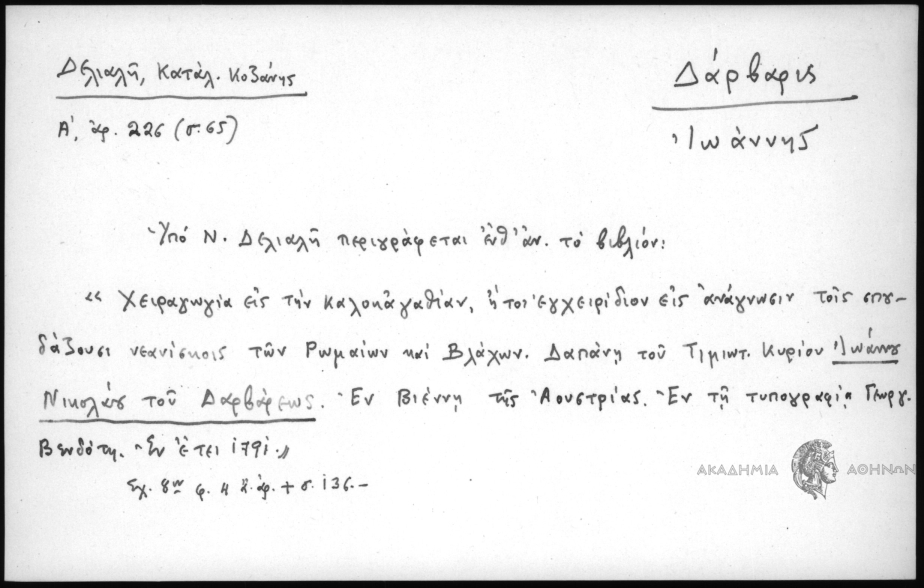 Δελιαλῆ, Κατάλ. Κοζάνης
Α', ἀρ. 226 (σ. 65)
Δάρβαρις
Ἰωάννης
Ὑπό Ν. Δελιαλῆ περιγράφεται ἐνθ' ἀν. τό βιβλίον:
" Χειραγωγία εἰς τήν καλοκἀγαθίαν, ἤτοι ἐγχειρίδιον εἰς ἀνάγνωσιν τοῖς σπου-
δάζουσι νεανίσκοις τῶν Ρωμαίων καί Βλάχων. Δαπάνῃ τοῦ Τιμιωτ. Κυρίου Ἰωάννου
Νικολάου τοῦ Δαρβάρεως. Ἐν Βιέννῃ τῆς Ἀουστρίας. Ἐν τῇ τυπογραφίᾳ Γεωργ.
Βενδότη. Ἐν ἔτει 1791."
Σχ. 8ον φ. 4 + σ. 136.-
ΑΚΑΔΗΜΙΑ ΑΘΗΝΩΝ